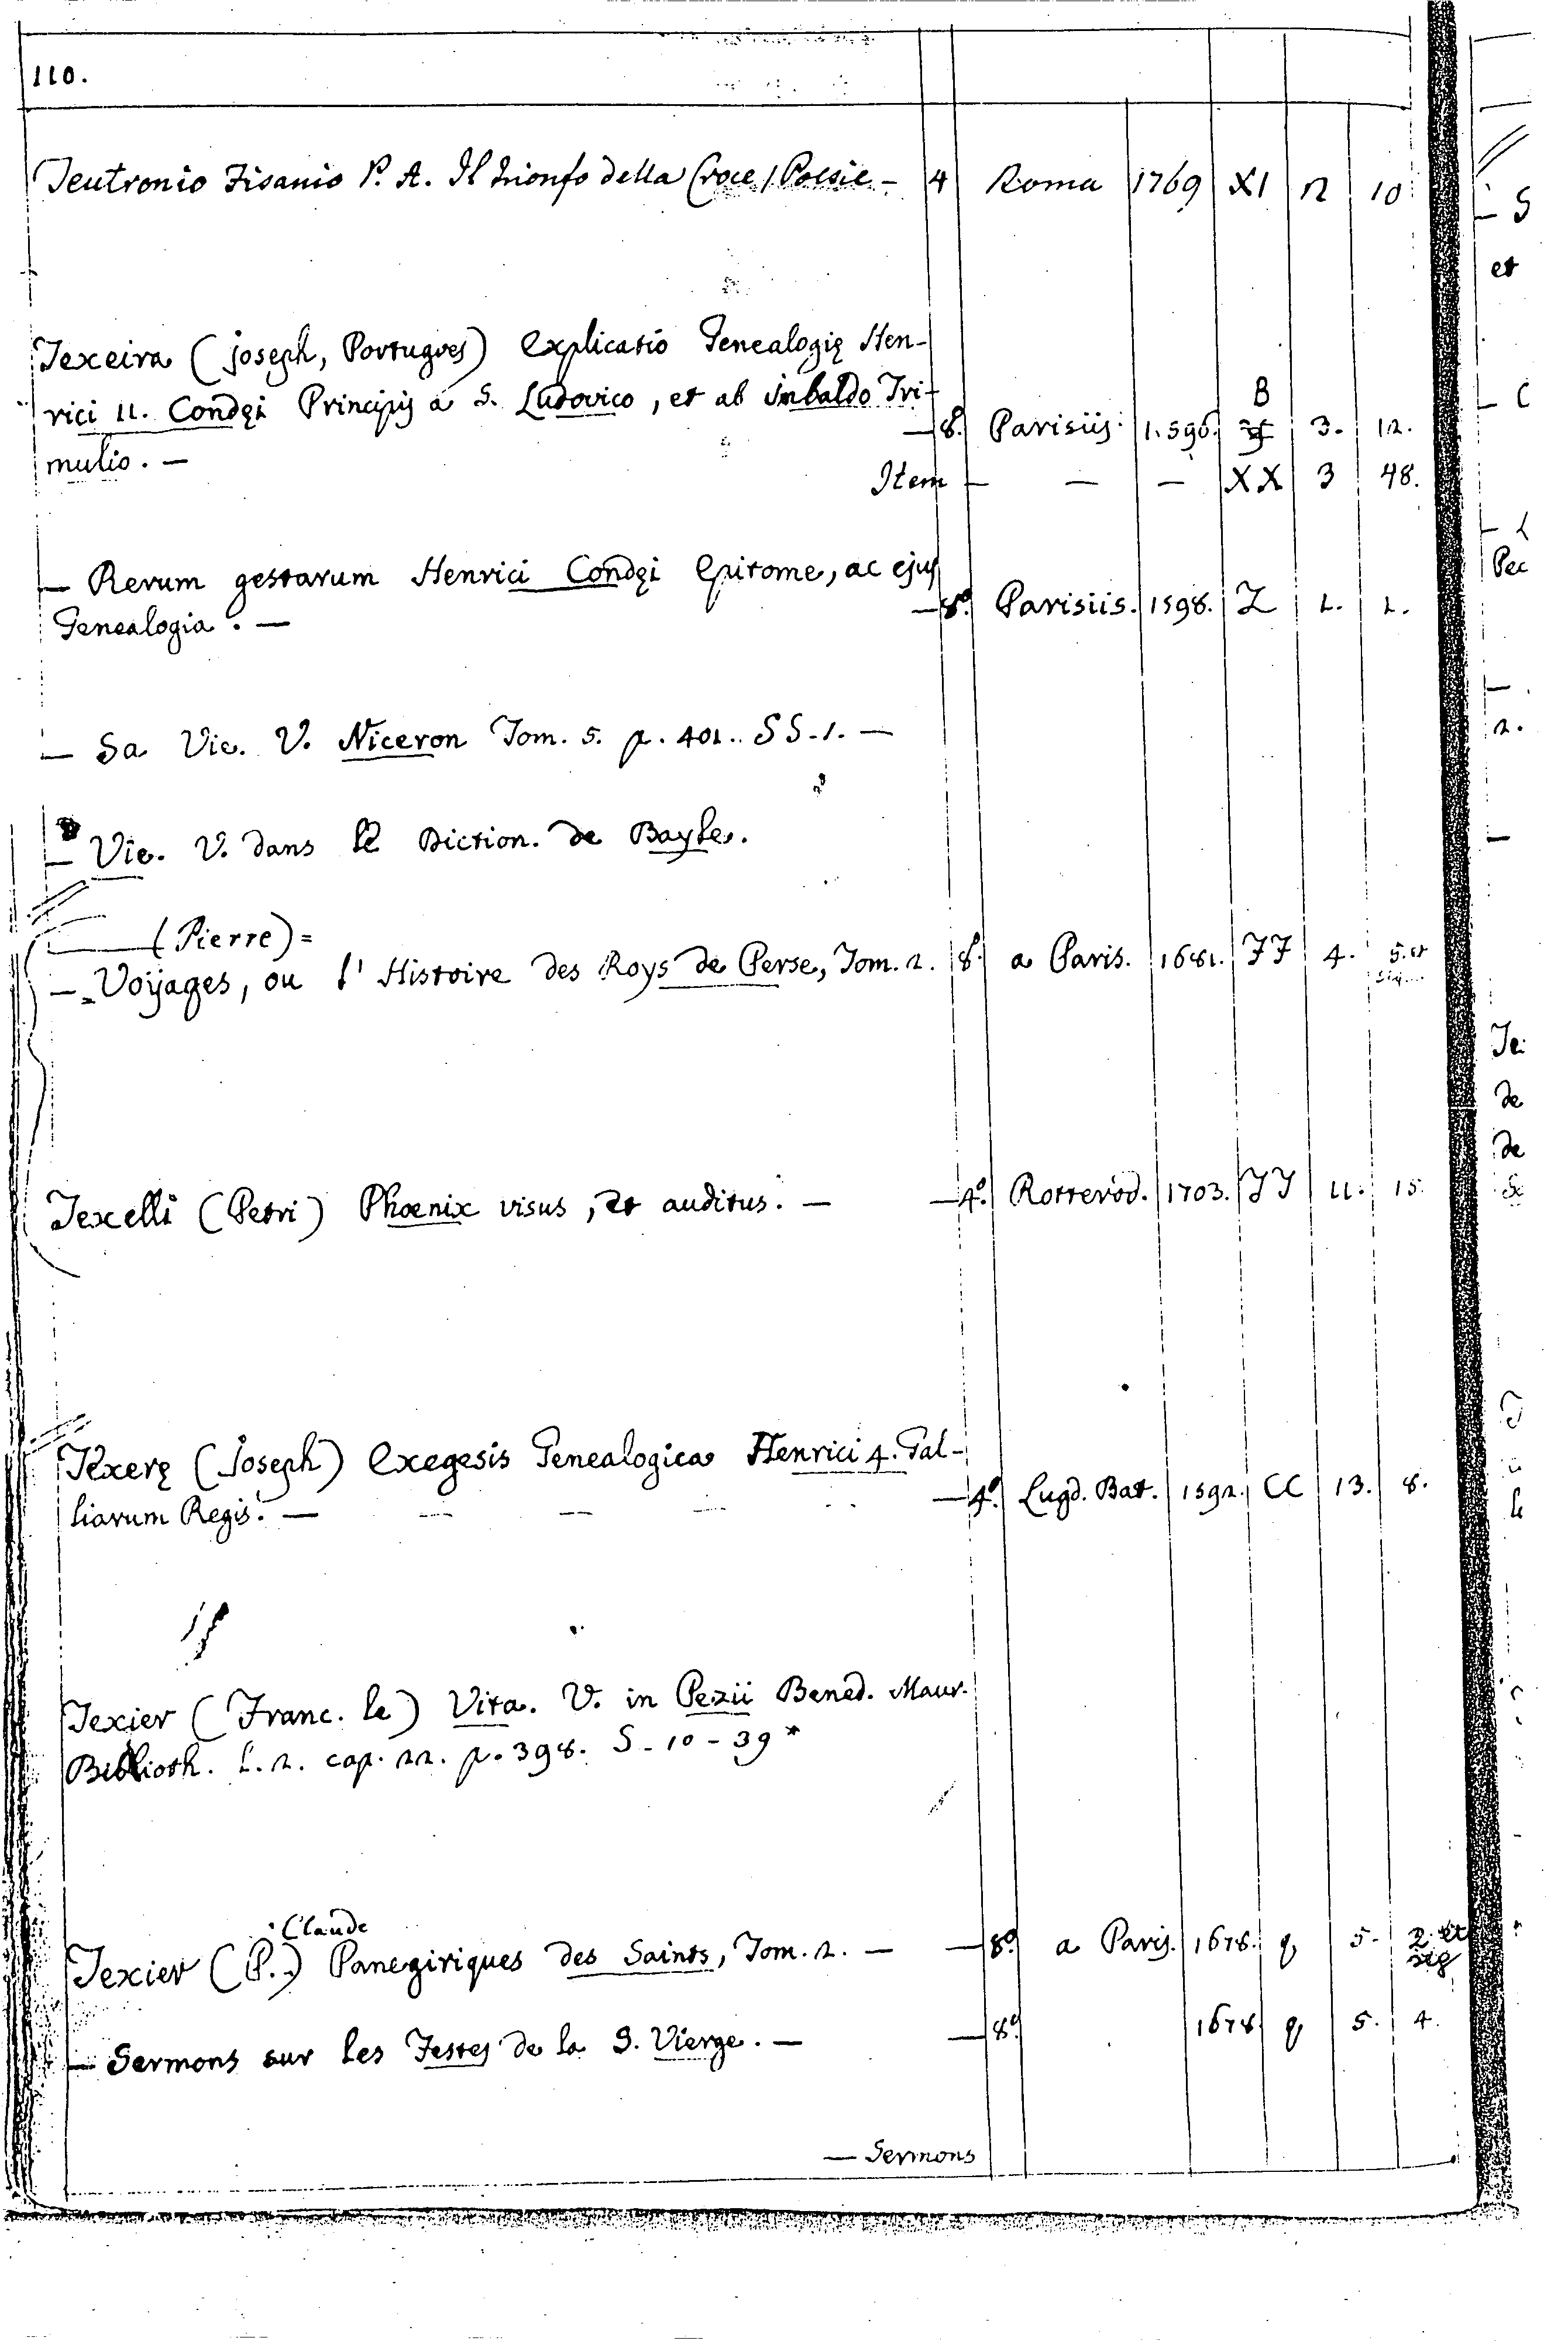 110.
Teutronio Fisanio P. A. Il trionfo della Croce / Poesie - 4 Roma 1769 XI 12 10
Texeira (Joseph, Portugues) Explicatio Genealogię Hen-
rici II. Condęi Principis a S. Ludovico, et ab Imbaldo Tri-
B
mulio. — — 8.° Parisiis. 1596. 3. 12.
Item — — — XX 3 48.
— Rerum gestarum Henrici Condęi Epitome, ac ejus
Genealogia. — — 8.° Parisiis. 1598. Z 1. 1.
— Sa Vie. V. Niceron Tom. 5. p. 401.. SS. 1. —
— Vie. V. dans le Diction. de Bayle.
— (Pierre) =
— = Voÿages, ou l' Histoire des Roys de Perse, Tom. 2. 8.° a Paris. 1681. FF 4. 5. et
seq...
Texelli (Petri) Phœnix visus, et auditus. — — 4.° Rotterod. 1703. JJ 11. 15.
Texerę (Joseph) Exegesis Genealogica Henrici 4. Gal-
liarum Regis. — — — — 4.° Lugd. Bat. 1592. CC 13. 8.
Texier (Franc. le) Vita. V. in Pezii Bened. Maur.
Biblioth. L. 2. cap. 22. p. 398. S - 10 - 39 *
Claude
Texier (P..) Panegiriques des Saints, Tom. 2. — — 8.° a Paris. 1678. q 5. 2. et
seq
— Sermons sur les Festes de la S. Vierge. — — 8.° 1678. q 5. 4.
— Sermons